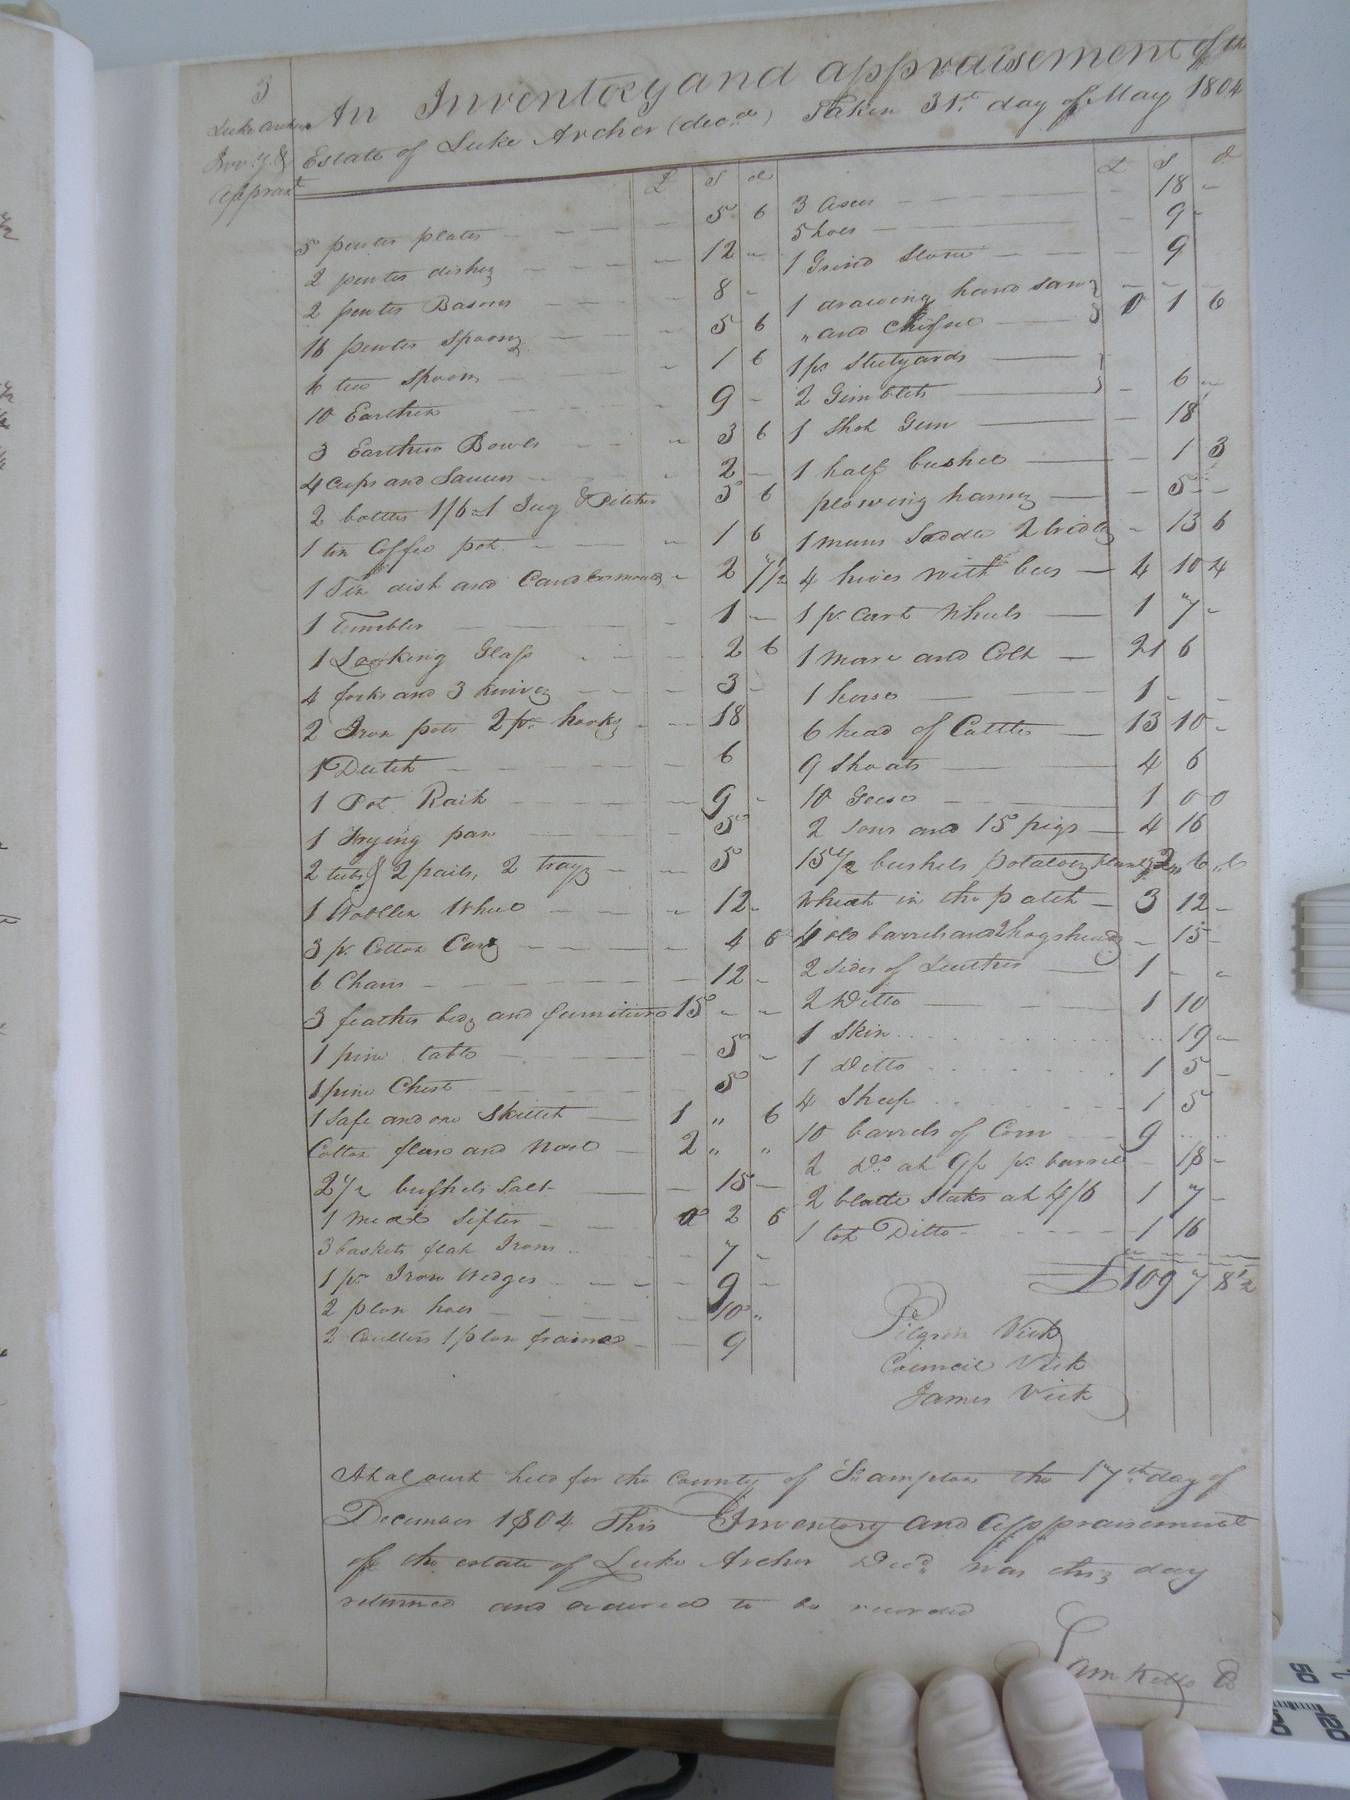 3
Luke Archer
Inv.y &
Appraist
An Inventory and appraisement of the
Estate of Luke Archer (decd) Taken 31st day of May 1804
£ S d
5 pewter plates - 5 6
2 pewter dishes - 12 -
2 pewter Basons - 8 -
16 pewter spoons - 5 6
6 tea Spoons - 1 6
10 Earthen - 9 -
3 Earthen Bowls - 3 6
4 cups and Saucers 2 -
2 bottles 1/6 1 Jug & Pitcher 5 6
1 tin Coffee pot - 1 6
1 Tin dish and - 2 7 1/2
1 Tumbler - 1 -
1 Looking Glass - 2 6
4 forks and 3 knives - 3 -
2 Iron pots 2 pr hooks - 18
1 Dutch - 6
1 Pot Rack - 9 -
1 Frying pan 5
2 tubs 2 pails, 2 trays - 5
1 Woollen Wheel - 12 -
3 pr Cotton Cards - 4 6
6 Chairs - 12 -
3 feather beds and furniture 15 - -
1 pine table - 5 -
1 pine Chest 5
1 Safe and one Skillet 1 " 6
Cotton flax and wool 2 " "
2 1/2 bushels Salt - 15 -
1 meal Sifter 0 2 6
3 baskets flat Irons - 7 -
1 pr Iron Wedges - 9 -
2 plow hoes - 10 "
2 Coulters 1 plow frame - 9
£ S d
3 axes - 18 -
5 hoes - 9 -
1 Grind Stone - 9
1 drawing hand saw
" and Chisel 0 1 6
1 pr Steelyards
2 Gimblets - 6 -
1 Shot Gun - 18
1 half bushel - 1 3
plowing harness - 5 -
1 mans Saddle 2 bridles - 13 6
4 hives with bees 4 10 4
1 pr cart Wheels 1 7 -
1 mare and Colt 21 6
1 horse 1 - -
6 head of Cattle 13 10 -
9 Shoats 4 6
10 Geese 1 0 0
2 Sows and 15 pigs 4 16
15 1/2 bushels potatoes
Wheat in the patch 3 12 -
4 old barrels and 2 hogsheads - 15 -
2 sides of Leather 1 - -
2 Ditto 1 10
1 Skin 19 -
1 Ditto 1 5 -
4 Sheep 1 5
10 barrels of Corn 9
2 Do at 9/ pr barrel - 18 -
2 Stacks at 1 7 -
1 Ditto 1 16
£109 7 8 1/2
Pilgrim Vick
Council Vick
James Vick
At a Court held for the County of Shampton the 17th day of
December 1804 This Inventory and Appraisement
of the estate of Luke Archer Decd was this day
returned and ordered to be recorded
Sam Kello